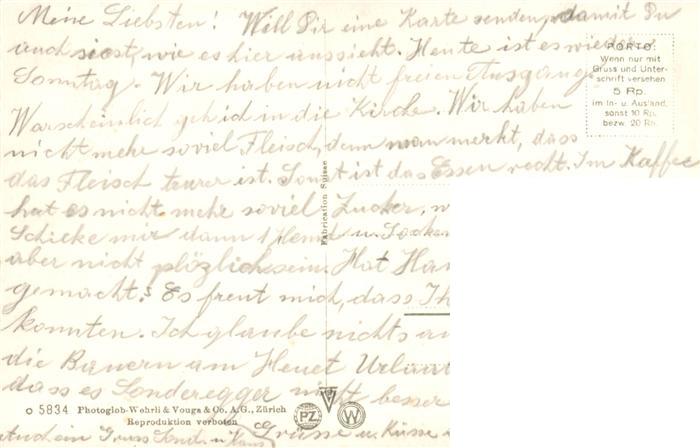 Meine Liebsten! Will Dir eine Karte senden, damit Du
auch siest, wie es hier aussieht. Heute ist es wieder
Sonntag. Wir haben nicht freien Ausgang.
Warscheinlich geh ich in die Kirche. Wir haben
nicht mehr soviel Fleisch, denn man merkt, dass
das Fleisch teurer ist. Sonst ist das Essen recht. Im Kaffee
hat es nicht mehr soviel Zucker,
Schicke mir dann 1 Hemd u. Socken
aber nicht plözlich sein. Hat
gemacht. Es freut mich, dass
konnten. Ich glaube nichts
die Bauern am Heuet Urlaub
dass es Sonderegger nicht besser
Grüsse u. Küsse
PORTO:
Wenn nur mit
Gruss und Unter-
schrift versehen
5 Rp.
im In- u. Ausland,
sonst 10 Rp.
bezw. 20 Rp.
Fabrication Suisse
5834 Photoglob-Wehrli & Vouga & Co. A.G., Zürich
Reproduktion verboten
PZ
V
W